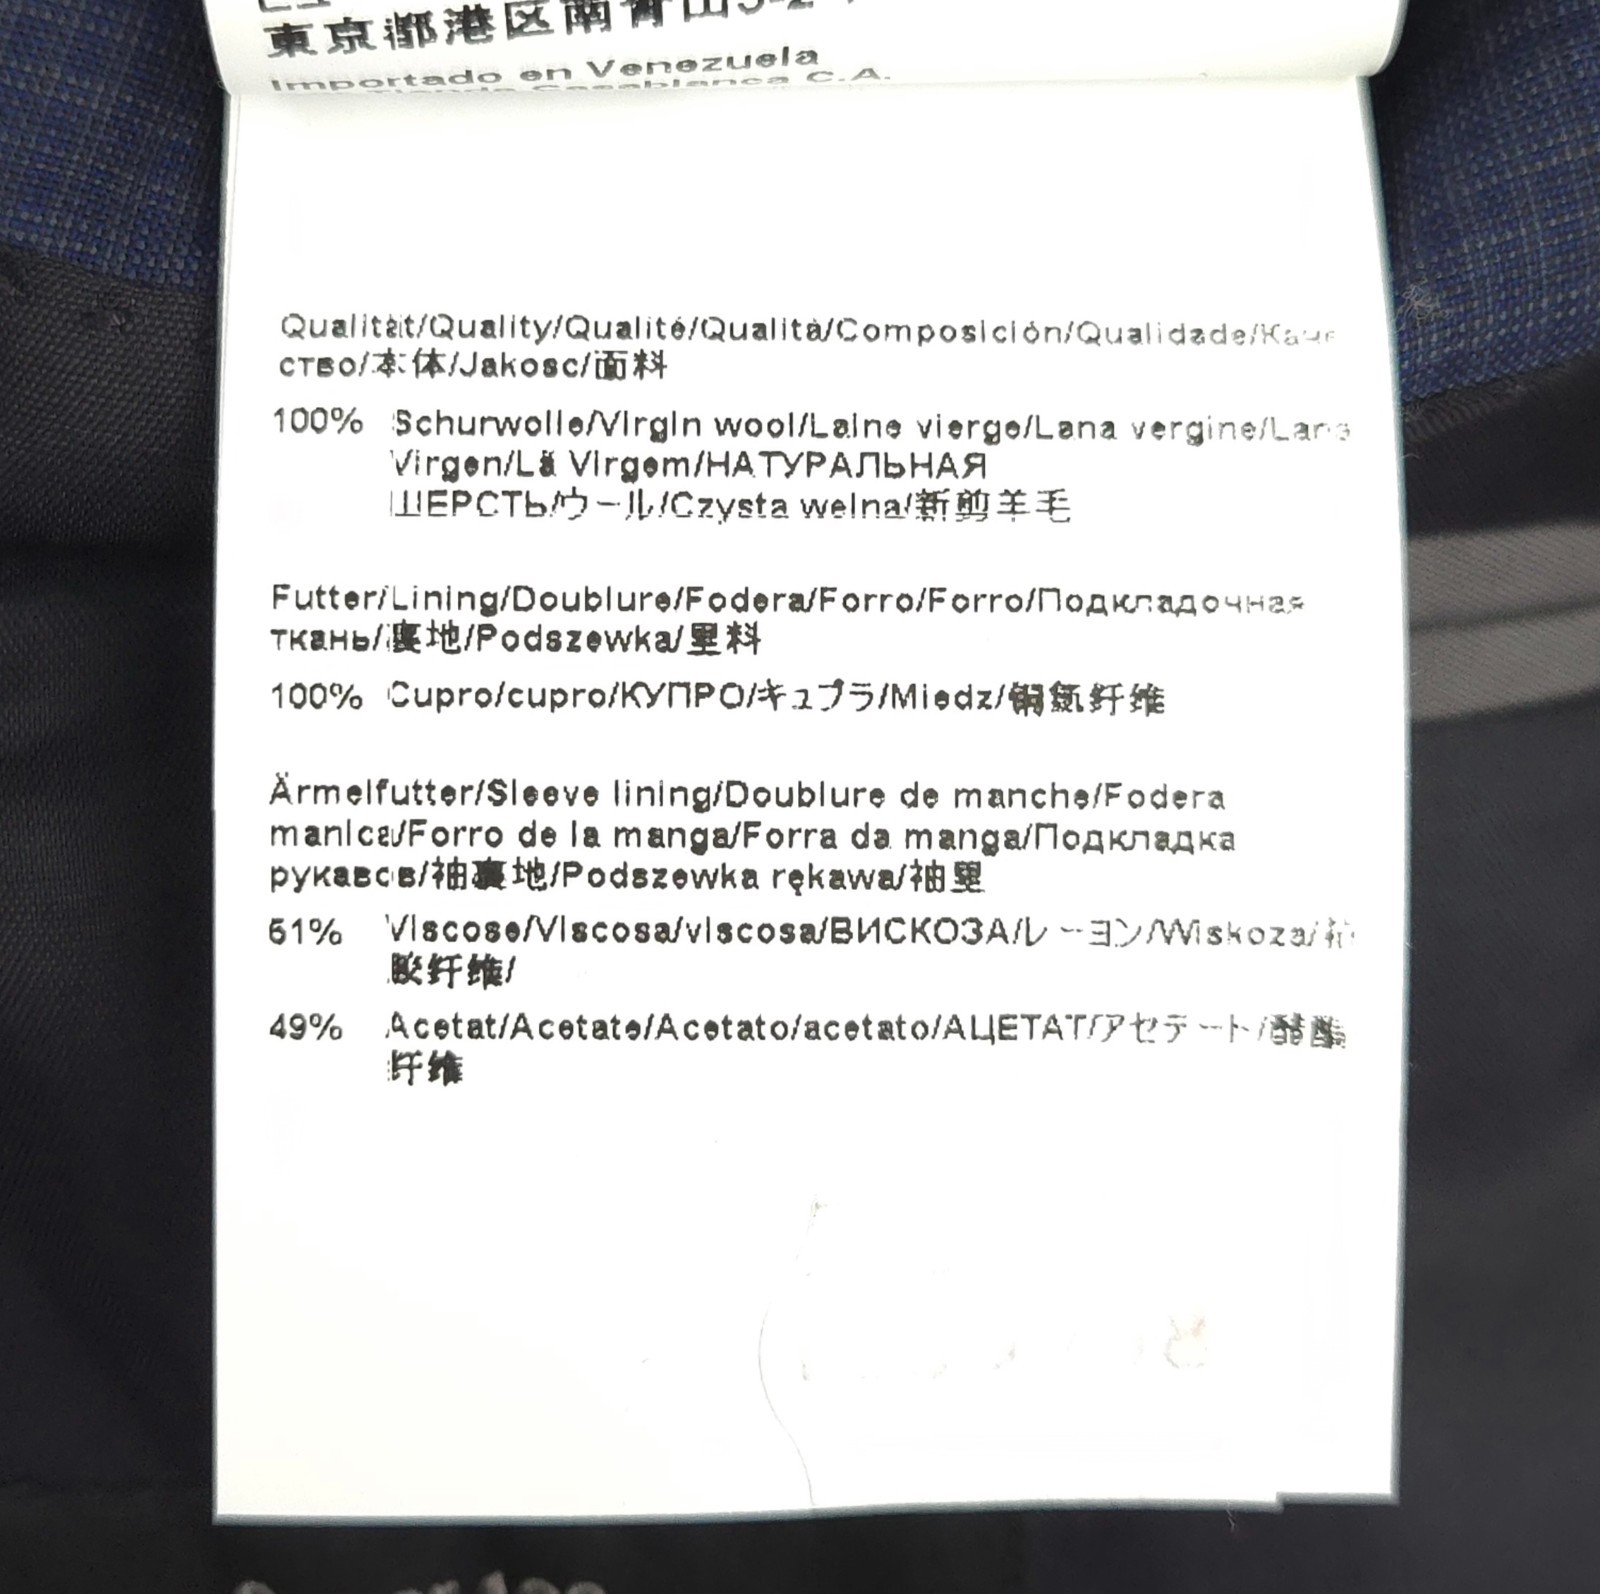 東京都港区南青山5-2-
Importado en Venezuela
Casablanca C.A.
Qualität/Quality/Qualité/Qualità/Composición/Qualidade/Каче
ство/本体/Jakosc/面料
100% Schurwolle/Virgin wool/Laine vierge/Lana vergine/Lana
Virgen/Lã Virgem/НАТУРАЛЬНАЯ
ШЕРСТЬ/ウール/Czysta welna/新剪羊毛
Futter/Lining/Doublure/Fodera/Forro/Forro/Подкладочная
ткань/裏地/Podszewka/里料
100% Cupro/cupro/КУПРО/キュプラ/Miedz/铜氨纤维
Ärmelfutter/Sleeve lining/Doublure de manche/Fodera
manica/Forro de la manga/Forra da manga/Подкладка
рукавов/袖裏地/Podszewka rękawa/袖里
51% Viscose/Viscosa/viscosa/ВИСКОЗА/レーヨン/Wiskoza/粘
胶纤维/
49% Acetat/Acetate/Acetato/acetato/АЦЕТАТ/アセテート/醋酯
纤维